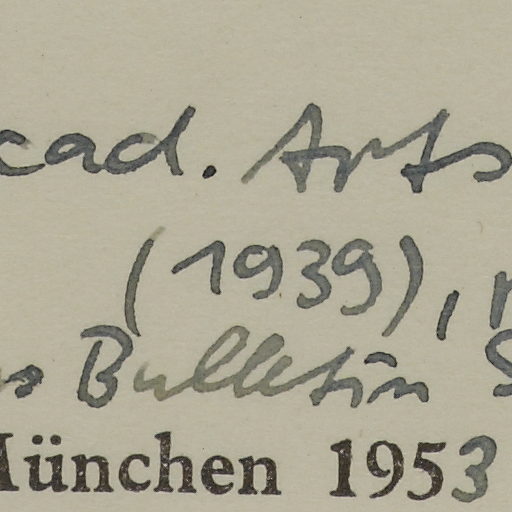 cad. Arts
(1939),
Bulletin
München 1953